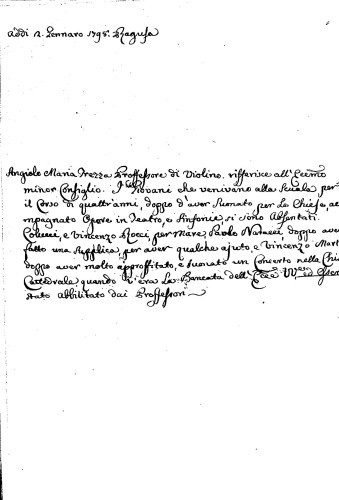 Addi 2. Gennaro 1795. Ragusa
Angiolo Maria Frezza Proffessore di Violino, rifferisce all'Eccmo
minor Consiglio. I Giovani che venivano alla Scuola, per
il Corso di quattr'anni, doppo d'aver Suonato, per le Chiese, ac
mpagnato Opere in Teatro, e Sinfonie, si sono Absentati.
e Vincenzo Bocci, per Mare, Paolo doppo aver
fatto una Supplica, per aver qualche ajuto, e Vincenzo Mart
doppo aver molto approffitato, e suonato un Concerto nella Chie
Cattedrale quando v'era La Bancata dell'Ecce ed
stato abbilitato dai Proffessori